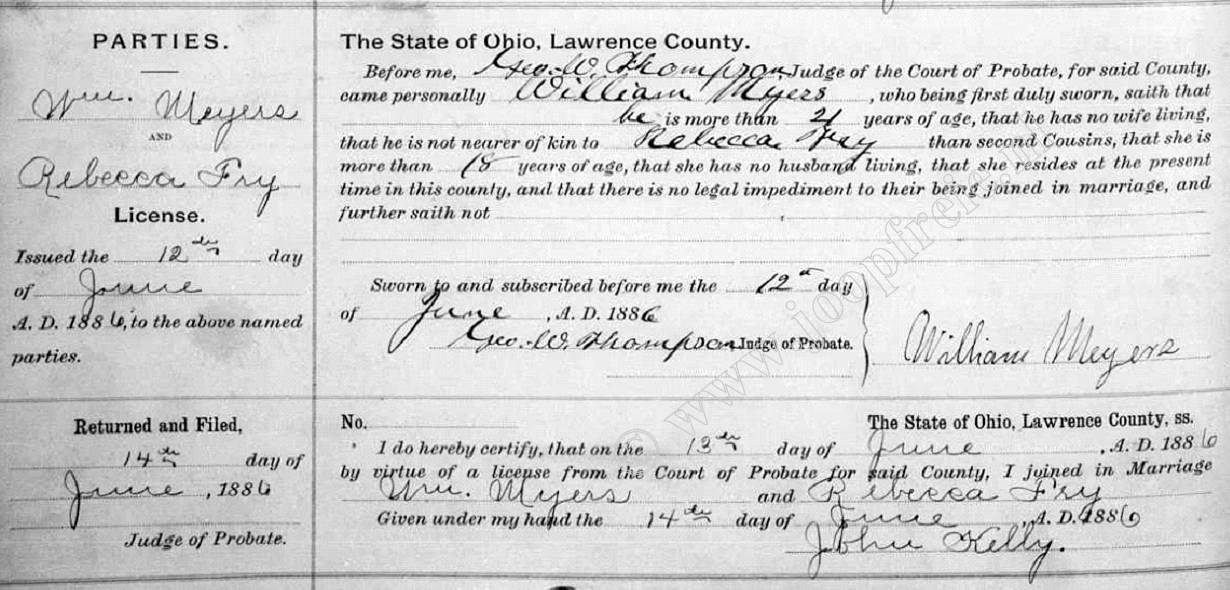 PARTIES.
Wm. Meyers
AND
Rebecca Fry
License.
Issued the 12th day
of June
A. D. 1886, to the above named
parties.
The State of Ohio, Lawrence County.
Before me, Geo. W. Thompson, Judge of the Court of Probate, for said County,
came personally William Myers , who being first duly sworn, saith that
he is more than 21 years of age, that he has no wife living,
that he is not nearer of kin to Rebecca Fry than second Cousins, that she is
more than 18 years of age, that she has no husband living, that she resides at the present
time in this county, and that there is no legal impediment to their being joined in marriage, and
further saith not
Sworn to and subscribed before me the 12th day
of June , A. D. 1886
Geo. W. Thompson Judge of Probate.
William Meyers
Returned and Filed,
14th day of
June , 1886
Judge of Probate.
No. The State of Ohio, Lawrence County, ss.
I do hereby certify, that on the 13th day of June , A. D. 1886
by virtue of a license from the Court of Probate for said County, I joined in Marriage
Wm. Myers and Rebecca Fry
Given under my hand the 14th day of June , A. D. 1886
John Kelly.
© www.joopfreie.nl